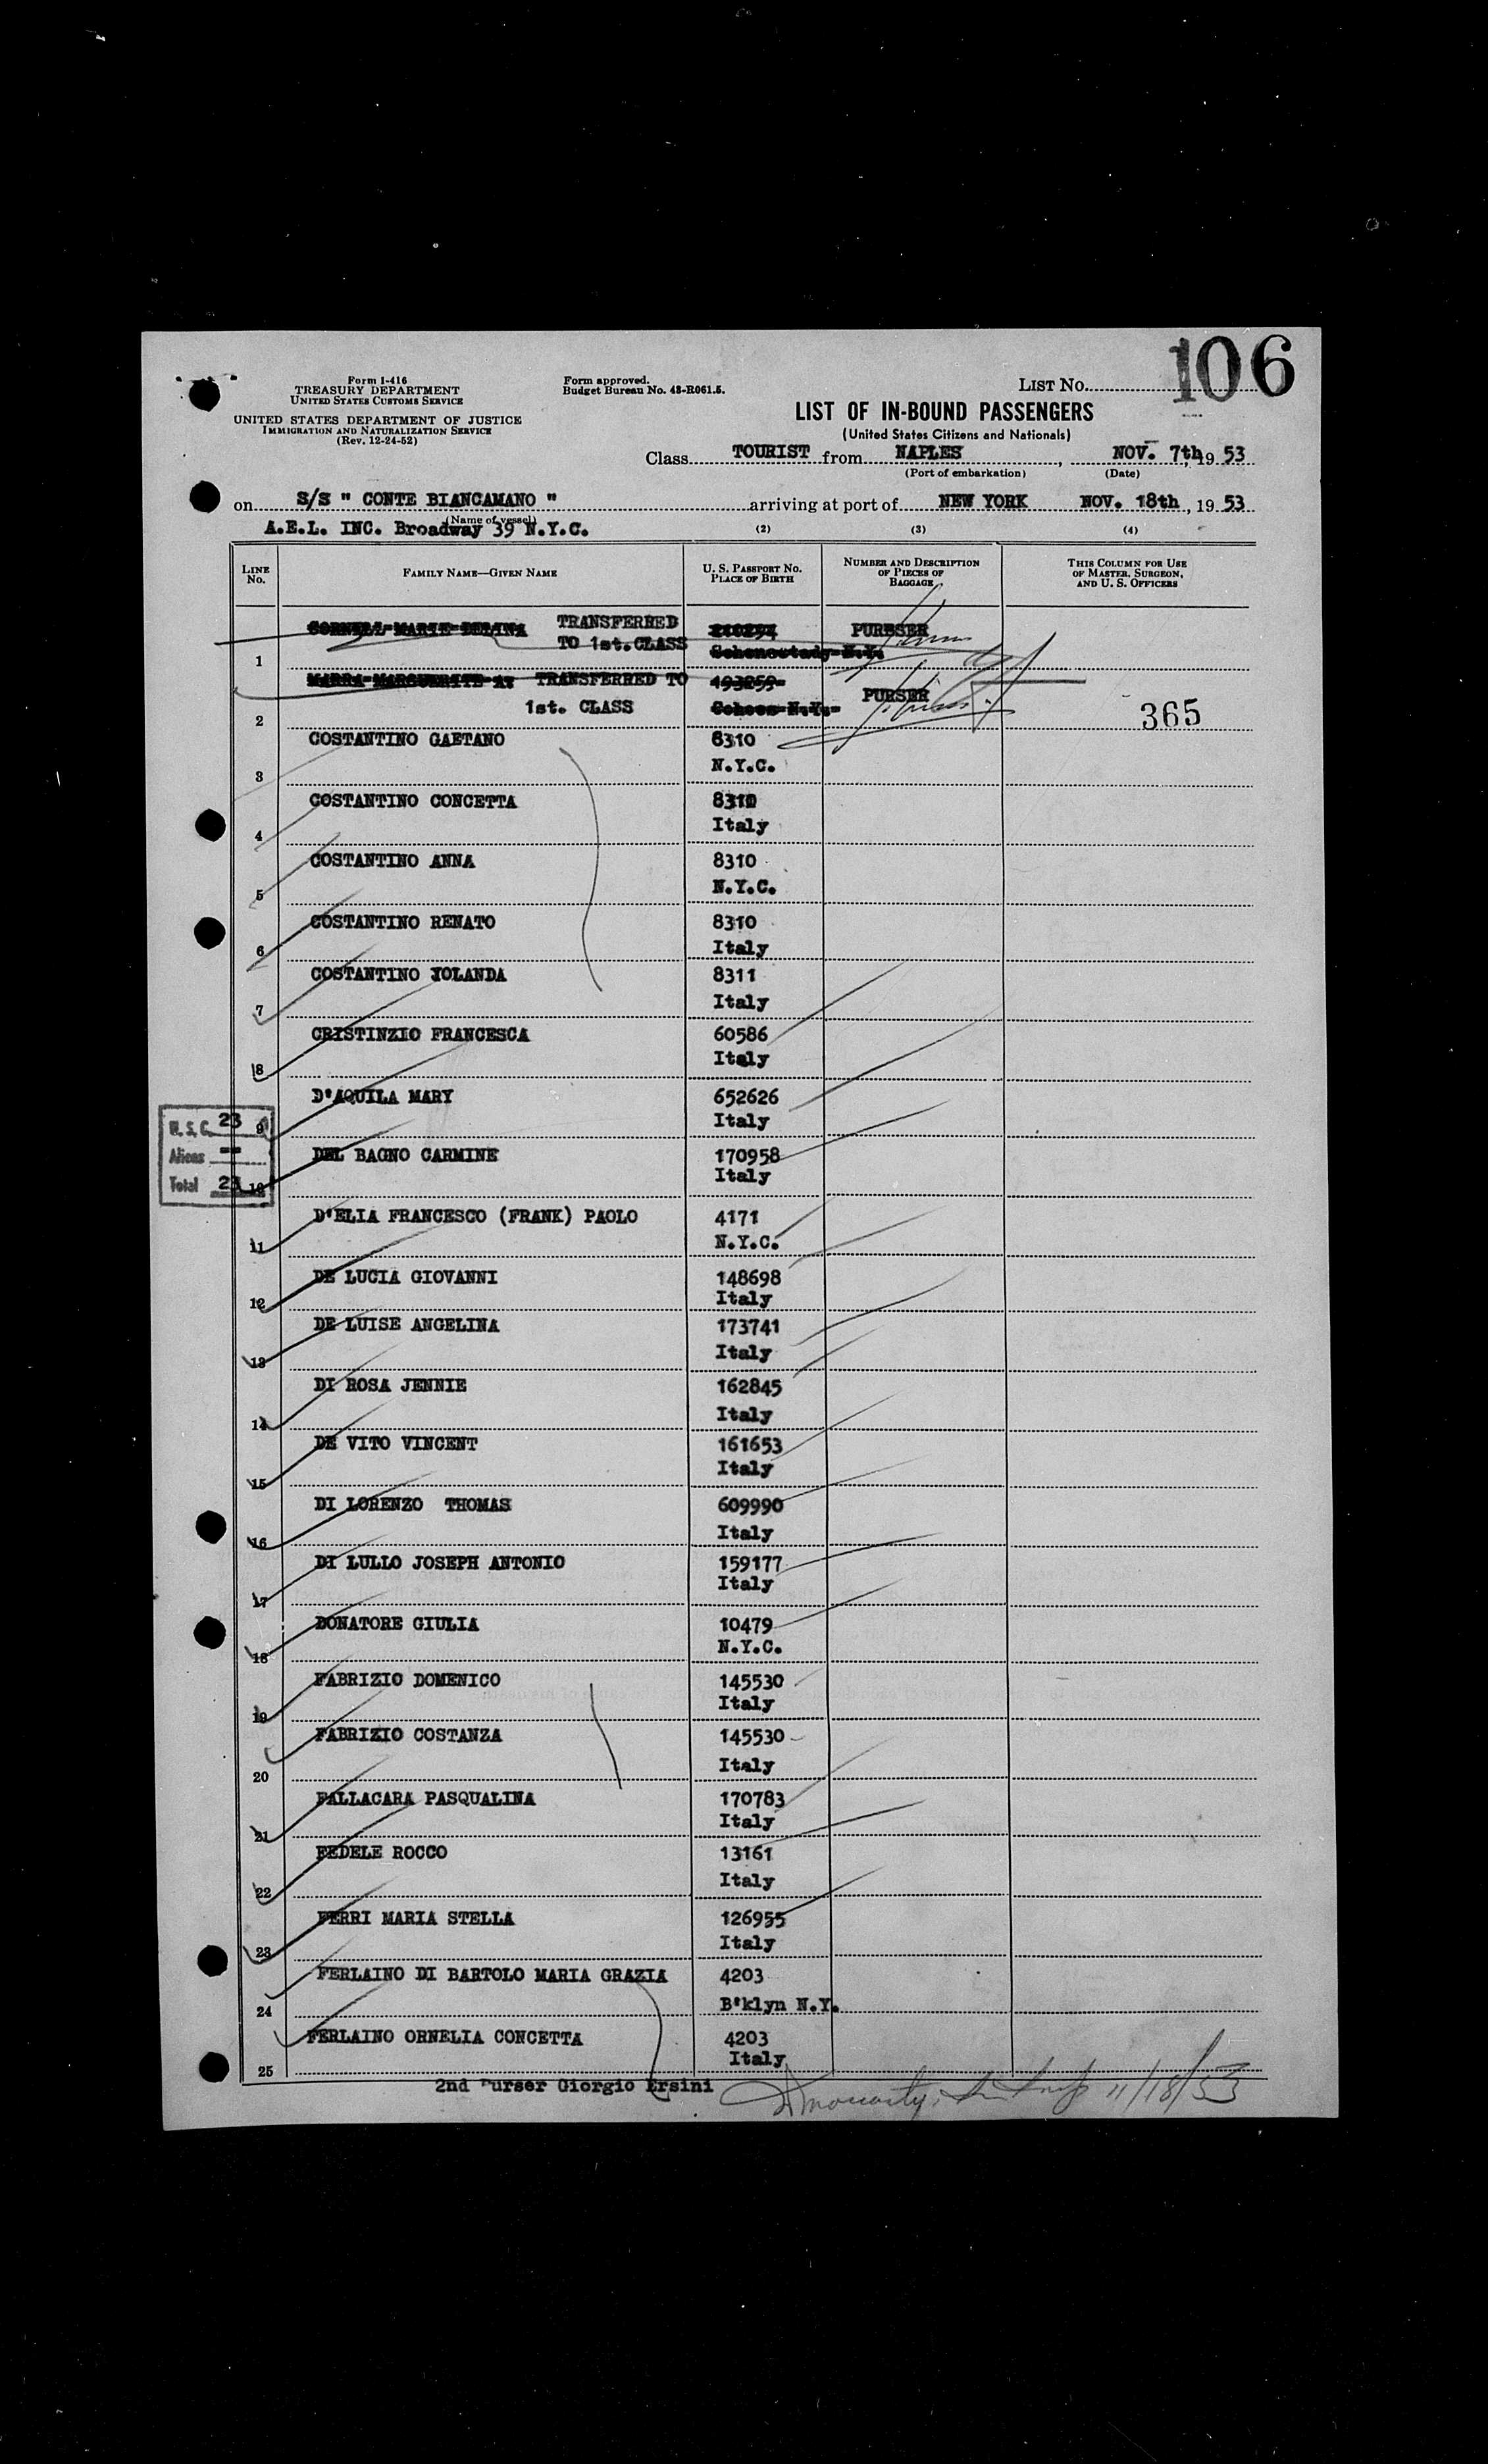 106
Form I-416
TREASURY DEPARTMENT
UNITED STATES CUSTOMS SERVICE
UNITED STATES DEPARTMENT OF JUSTICE
IMMIGRATION AND NATURALIZATION SERVICE
(Rev. 12-24-52)
Form approved.
Budget Bureau No. 43-R061.5.
LIST NO.
LIST OF IN-BOUND PASSENGERS
(United States Citizens and Nationals)
Class TOURIST from NAPLES, NOV. 7th, 19 53
(Port of embarkation) (Date)
on S/S " CONTE BIANCAMANO " arriving at port of NEW YORK NOV. 18th, 19 53
(Name of vessel)
A.E.L. INC. Broadway 39 N.Y.C. (2) (3) (4)
LINE NO. FAMILY NAME—GIVEN NAME U. S. PASSPORT NO. PLACE OF BIRTH NUMBER AND DESCRIPTION OF PIECES OF BAGGAGE THIS COLUMN FOR USE OF MASTER, SURGEON, AND U. S. OFFICERS
TRANSFERRED PURSSER
1 TO 1st.CLASS Schenectady N.Y.
MARRA MARGUERITE A. TRANSFERRED TO 193259 PURSER
2 1st. CLASS Cohoes N.Y. 365
COSTANTINO GAETANO 8310
3 N.Y.C.
COSTANTINO CONCETTA 8310
4 Italy
COSTANTINO ANNA 8310
5 N.Y.C.
COSTANTINO RENATO 8310
6 Italy
COSTANTINO YOLANDA 8311
7 Italy
CRISTINZIO FRANCESCA 60586
8 Italy
D'AQUILA MARY 652626
9 Italy
U.S.C. 23
Aliens --
Total 23
DEL BAGNO CARMINE 170958
10 Italy
D'ELIA FRANCESCO (FRANK) PAOLO 4171
11 N.Y.C.
DE LUCIA GIOVANNI 148698
12 Italy
DE LUISE ANGELINA 173741
13 Italy
DI ROSA JENNIE 162845
14 Italy
DE VITO VINCENT 161653
15 Italy
DI LORENZO THOMAS 609990
16 Italy
DI LULLO JOSEPH ANTONIO 159177
17 Italy
DONATORE GIULIA 10479
18 N.Y.C.
FABRIZIO DOMENICO 145530
19 Italy
FABRIZIO COSTANZA 145530
20 Italy
FALLACARA PASQUALINA 170783
21 Italy
FEDELE ROCCO 13161
22 Italy
FERRI MARIA STELLA 126955
23 Italy
FERLAINO DI BARTOLO MARIA GRAZIA 4203
24 B'klyn N.Y.
FERLAINO ORNELIA CONCETTA 4203
25 Italy
2nd Purser Giorgio Ersini 11/18/53